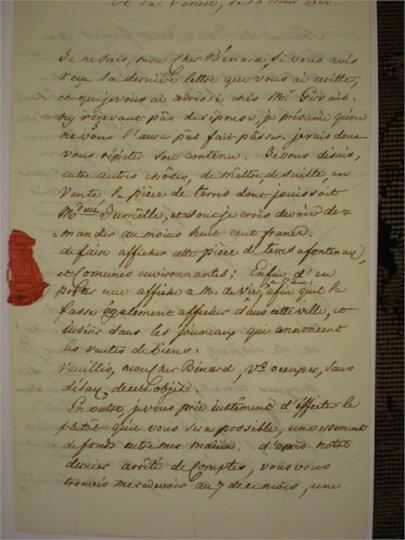 Je ne sais, mon cher Bénard, si vous avés
reçu la derniere lettre que vous ai écritte,
et que je vous ai adressé chés Mr. Gervais.
n'y recevant pas de réponse, je présume qu'on
ne vous l'aura pas fait passer. je vais donc
vous répéter son contenu. Je vous disais,
entre autres choses, de mettre de suitte en
vente la piece de terres dont jouissoit
et dont je crois devoir de-
=mander au moins huit cent francs.
de faire afficher cette piece de terres a fontenay,
et Communes environnantes; Enfin d'en
porter une affiche a M. afin qu'il la
fasse également afficher dans cette ville, et
insérer dans les journeaux qui annoncent
les ventes de biens.
Veuillés, mon cher Bénard, vs. occuper, sans
délay, de cet objet.
En outre, je vous prie instâment d'effectuer le
plutôt que vous sera possible, un versement
de fonds entre mes mains. d'après notre
dernier arrêté de Comptes, vous vous
trouviés me redevoir au 7 de ce mois, une